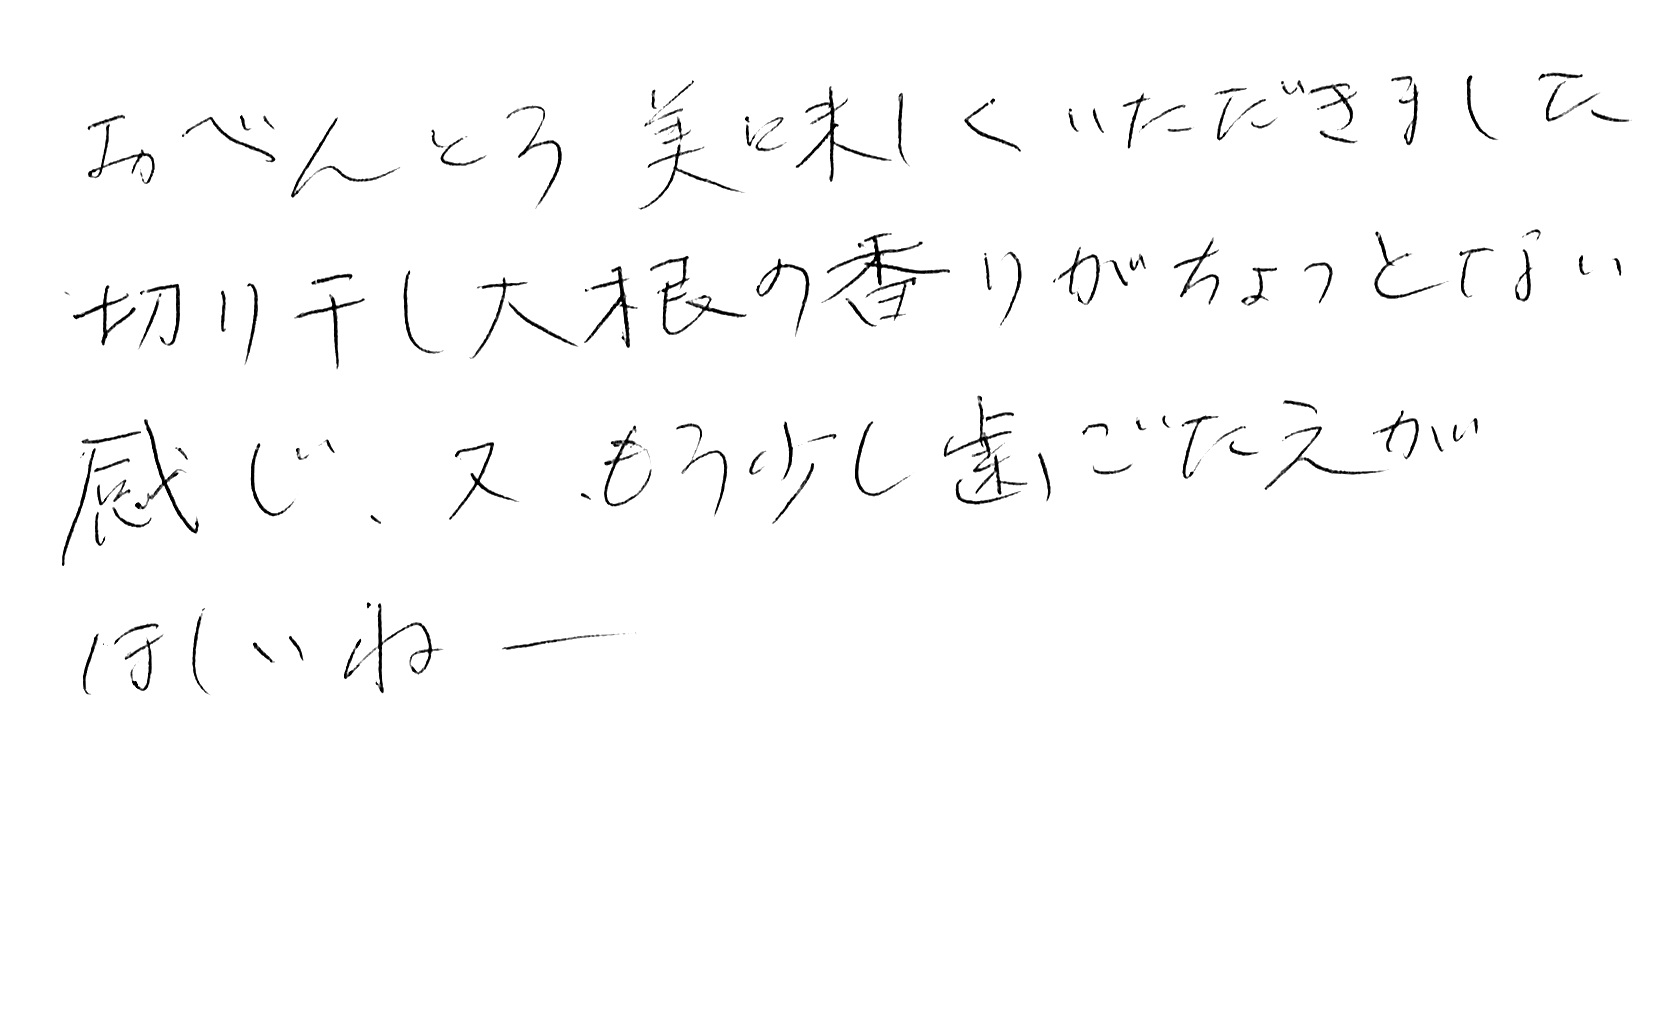 おべんとう 美味しくいただきました
切り干し大根の香りがちょっとない
感じ、又、もう少し歯ごたえが
ほしいねー